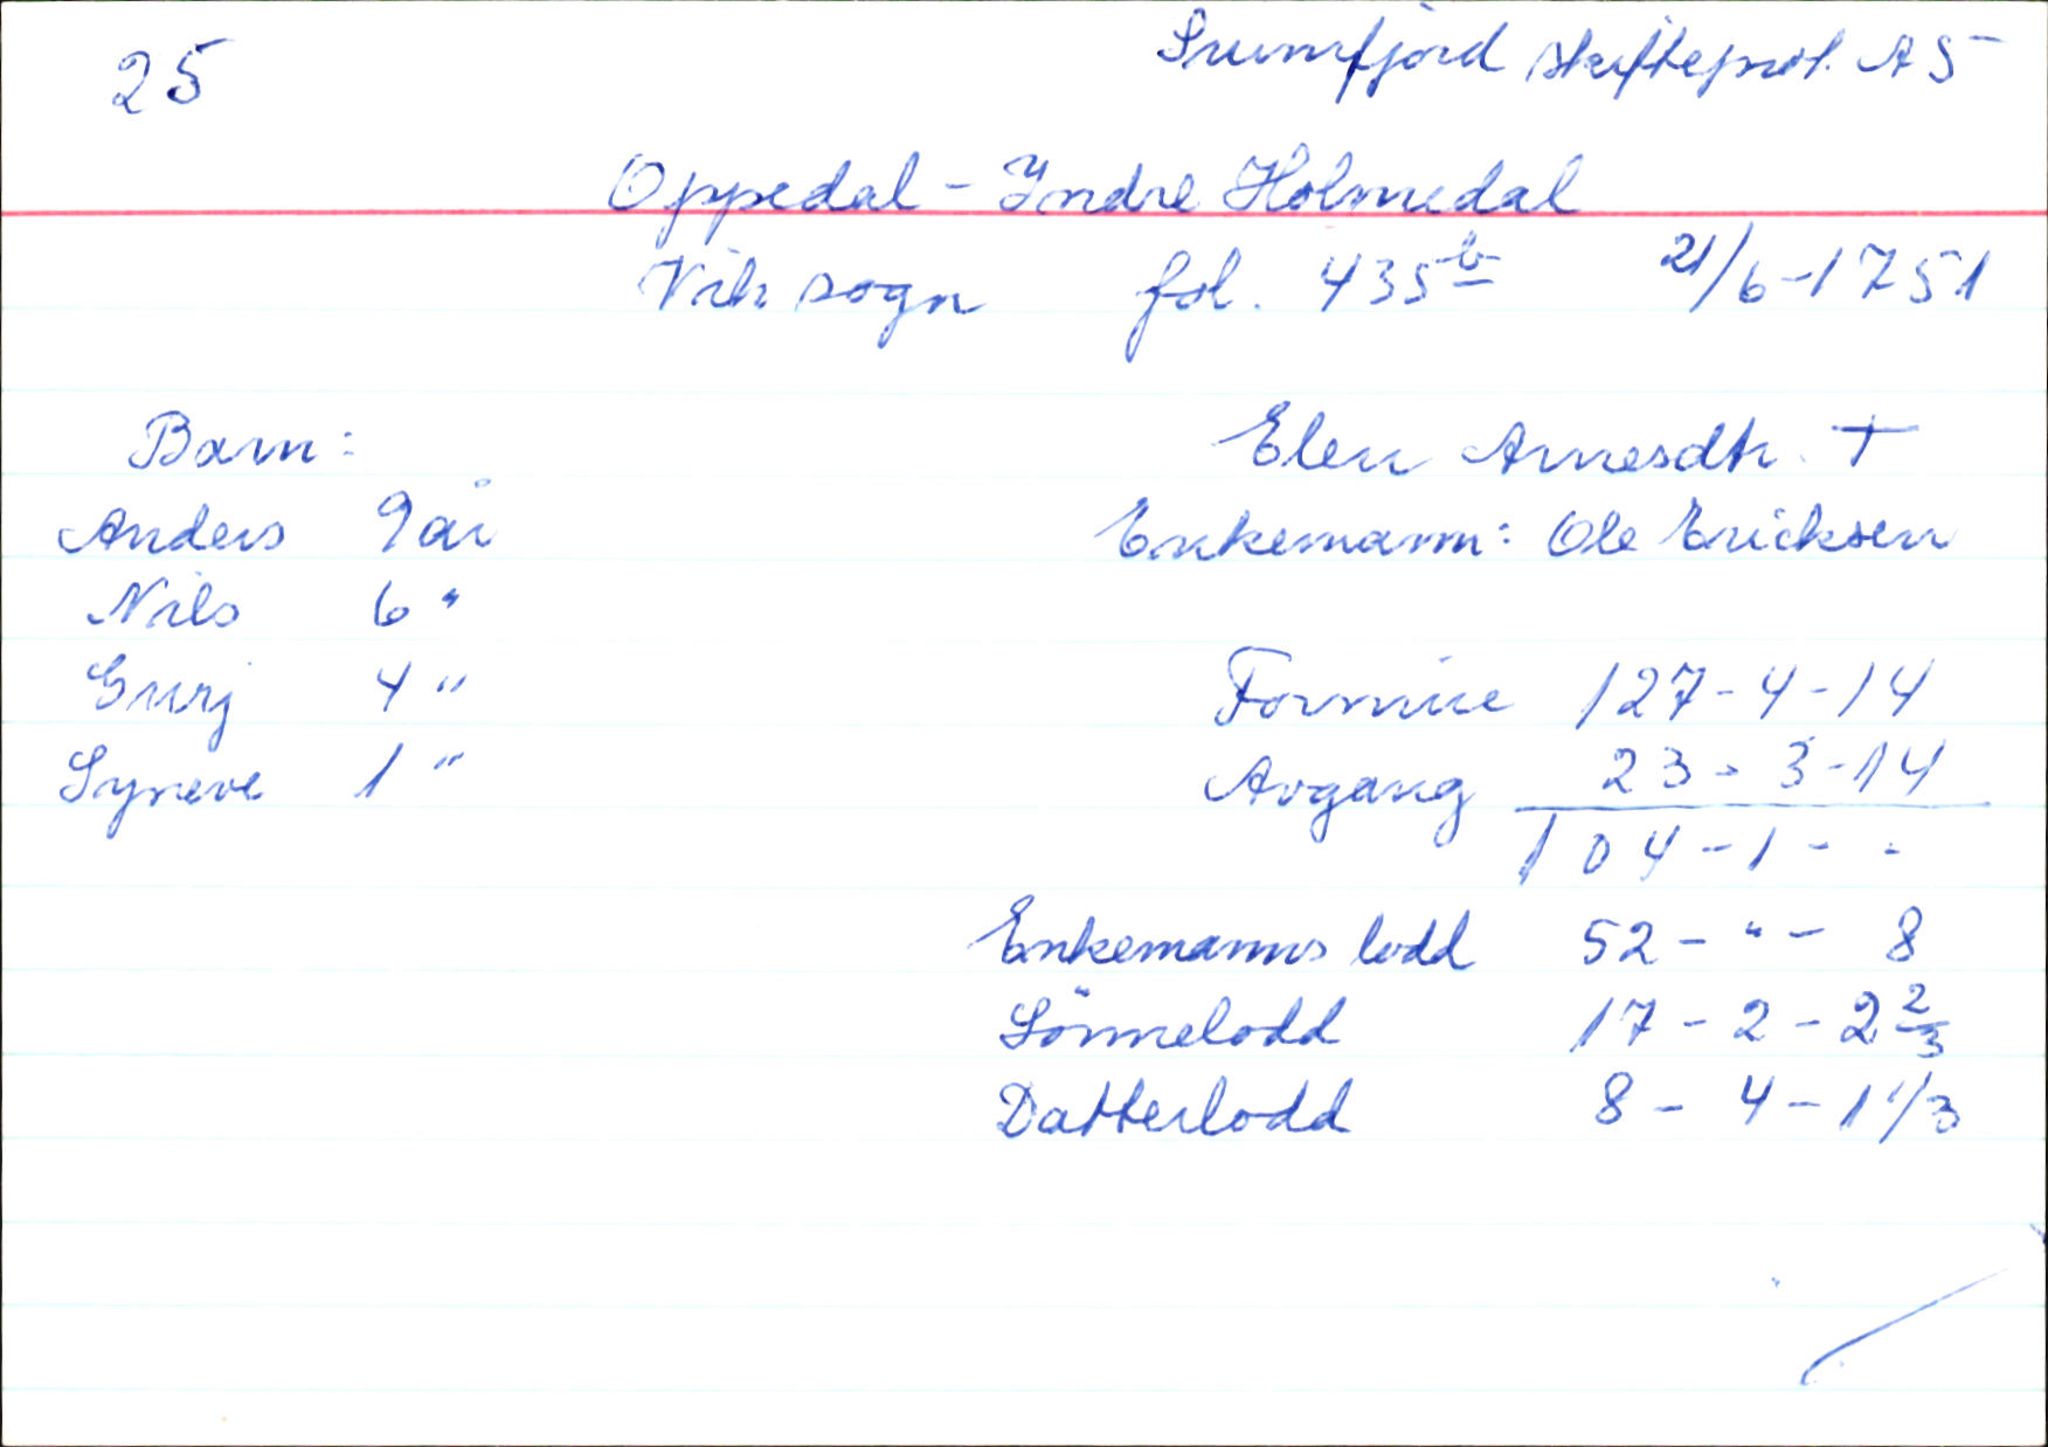 25
Sunnfjord skifteprot. A5
Oppedal - Yndre Holmedal
Vik sogn fol. 435b 21/6-1751
Barn:
Elen Arnesdtr. †
Anders 9 år
Enkemann: Ole Ericksen
Nils 6 "
Gurj 4 "
Formue 127-4-14
Syneve 1 "
Avgang 23-3-14
104-1- -
Enkemanns lodd 52-"-8
Sönnelodd 17-2-2 2/3
Datterlodd 8-4-1 1/3